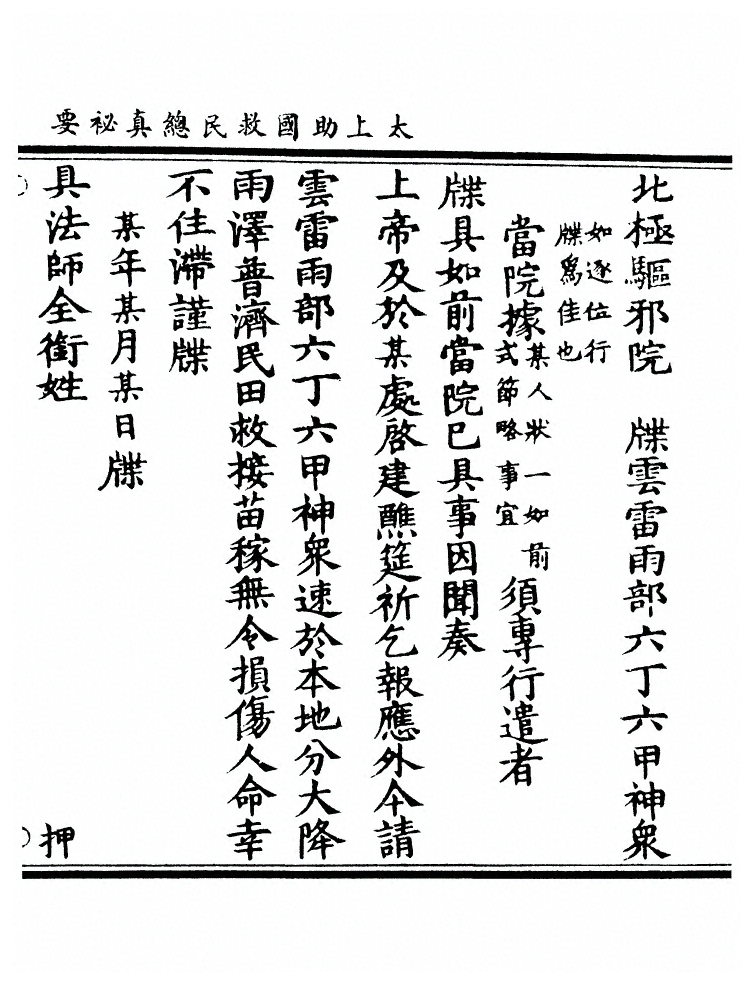 太上助國救民總真祕要
北極驅邪院　牒雲雷雨部六丁六甲神衆
如逐位行
牒爲佳也
當院據某人狀一如前式節略事宜須專行遣者
牒具如前當院已具事因聞奏
上帝及於某處啓建醮筵祈乞報應外今請
雲雷雨部六丁六甲神衆速於本地分大降
雨澤普濟民田救接苗稼無令損傷人命幸
不住滯謹牒
某年某月某日牒
具法師全銜姓　押